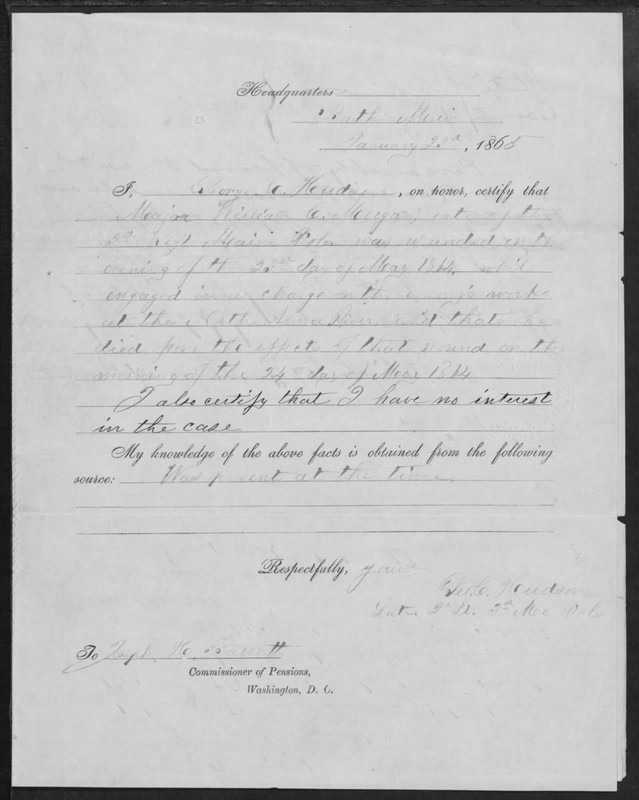 Headquarters
Bath Maine
January 2nd, 1865
I, George C. Hudson, on honor, certify that
Major William C. Morgan, late of the
3d Regt Maine Vols was wounded on the
evening of the 23rd day of May 1864 while
engaged in a charge on the enemy's works
at the North Anna River, and that he
died from the effects of that wound on the
morning of the 24 day of May 1864
I also certify that I have no interest
in the case
My knowledge of the above facts is obtained from the following
source: Was present at the time.
Respectfully, yours
Geo. C. Hudson
Late 2d Lt. 3d Me Vols
To Joseph H. Barrett
Commissioner of Pensions,
Washington, D. C.